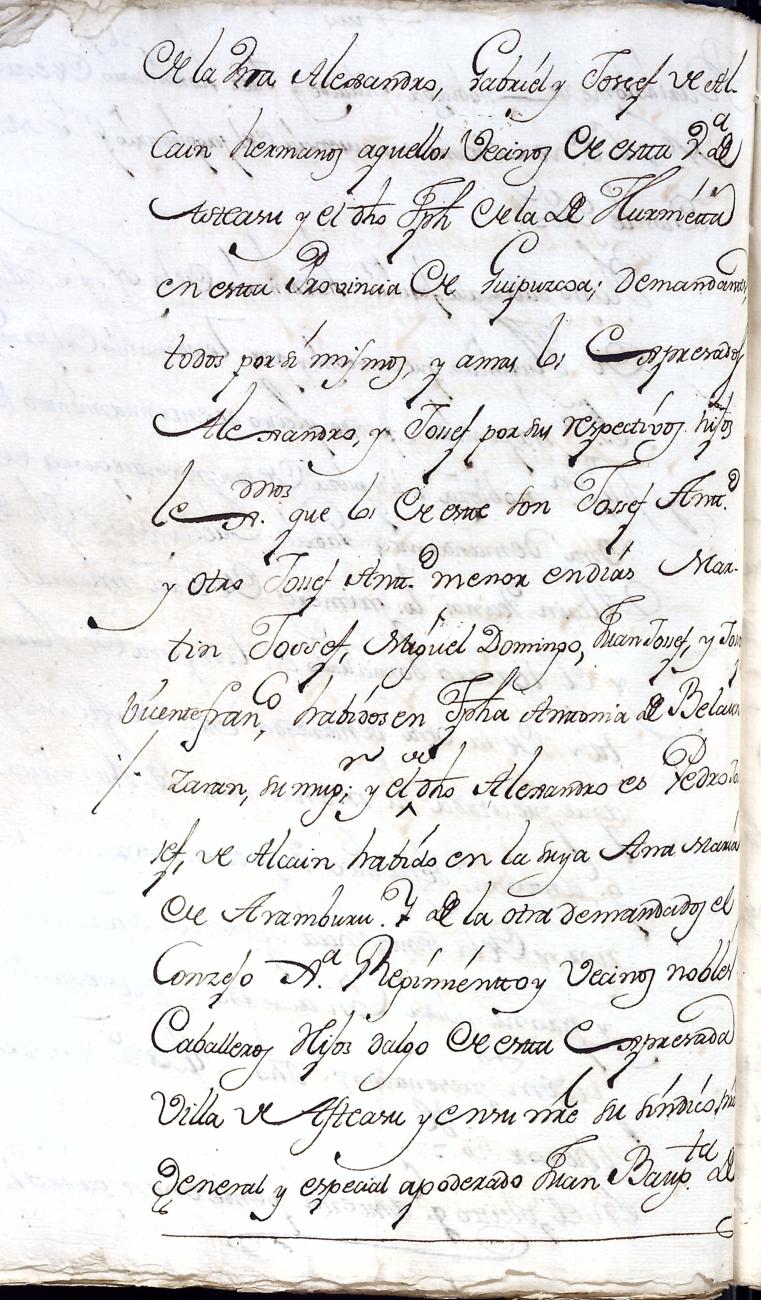 de la una Alexandro, Gabriel y Josseph de Al-
cain hermanos aquellos Vecinos de esta v.ª de
Asteasu y el dho Jph de la de Hurnieta
en esta Provincia de Guipuzcoa; Demandantes,
todos por si mismos, y amas los Expresados
Alexandro, y Jossef por sus respectivos hijos
lexmos. que los de este son Jossef Antt.º
y otro Jossef Antt.º menor en dias Mar-
tin Jossef, Miguel Domingo, Juan Jossef, y
Vicente fran.co, habidos en Jpha Antonia de Belaun
zaran, su mugr; y el de dho Alexandro es Pedro Jo
sef, de Alcain habido en la suya Ana Maria
de Aramburu. Y de la otra demandados el
Conzejo A.ª Regimiento y Vecinos nobles
Caballeros Hijos dalgo de esta Expresada
Villa de Asteasu y en su nre su sindico, pror
General y especial apoderado Juan Baup.ta de